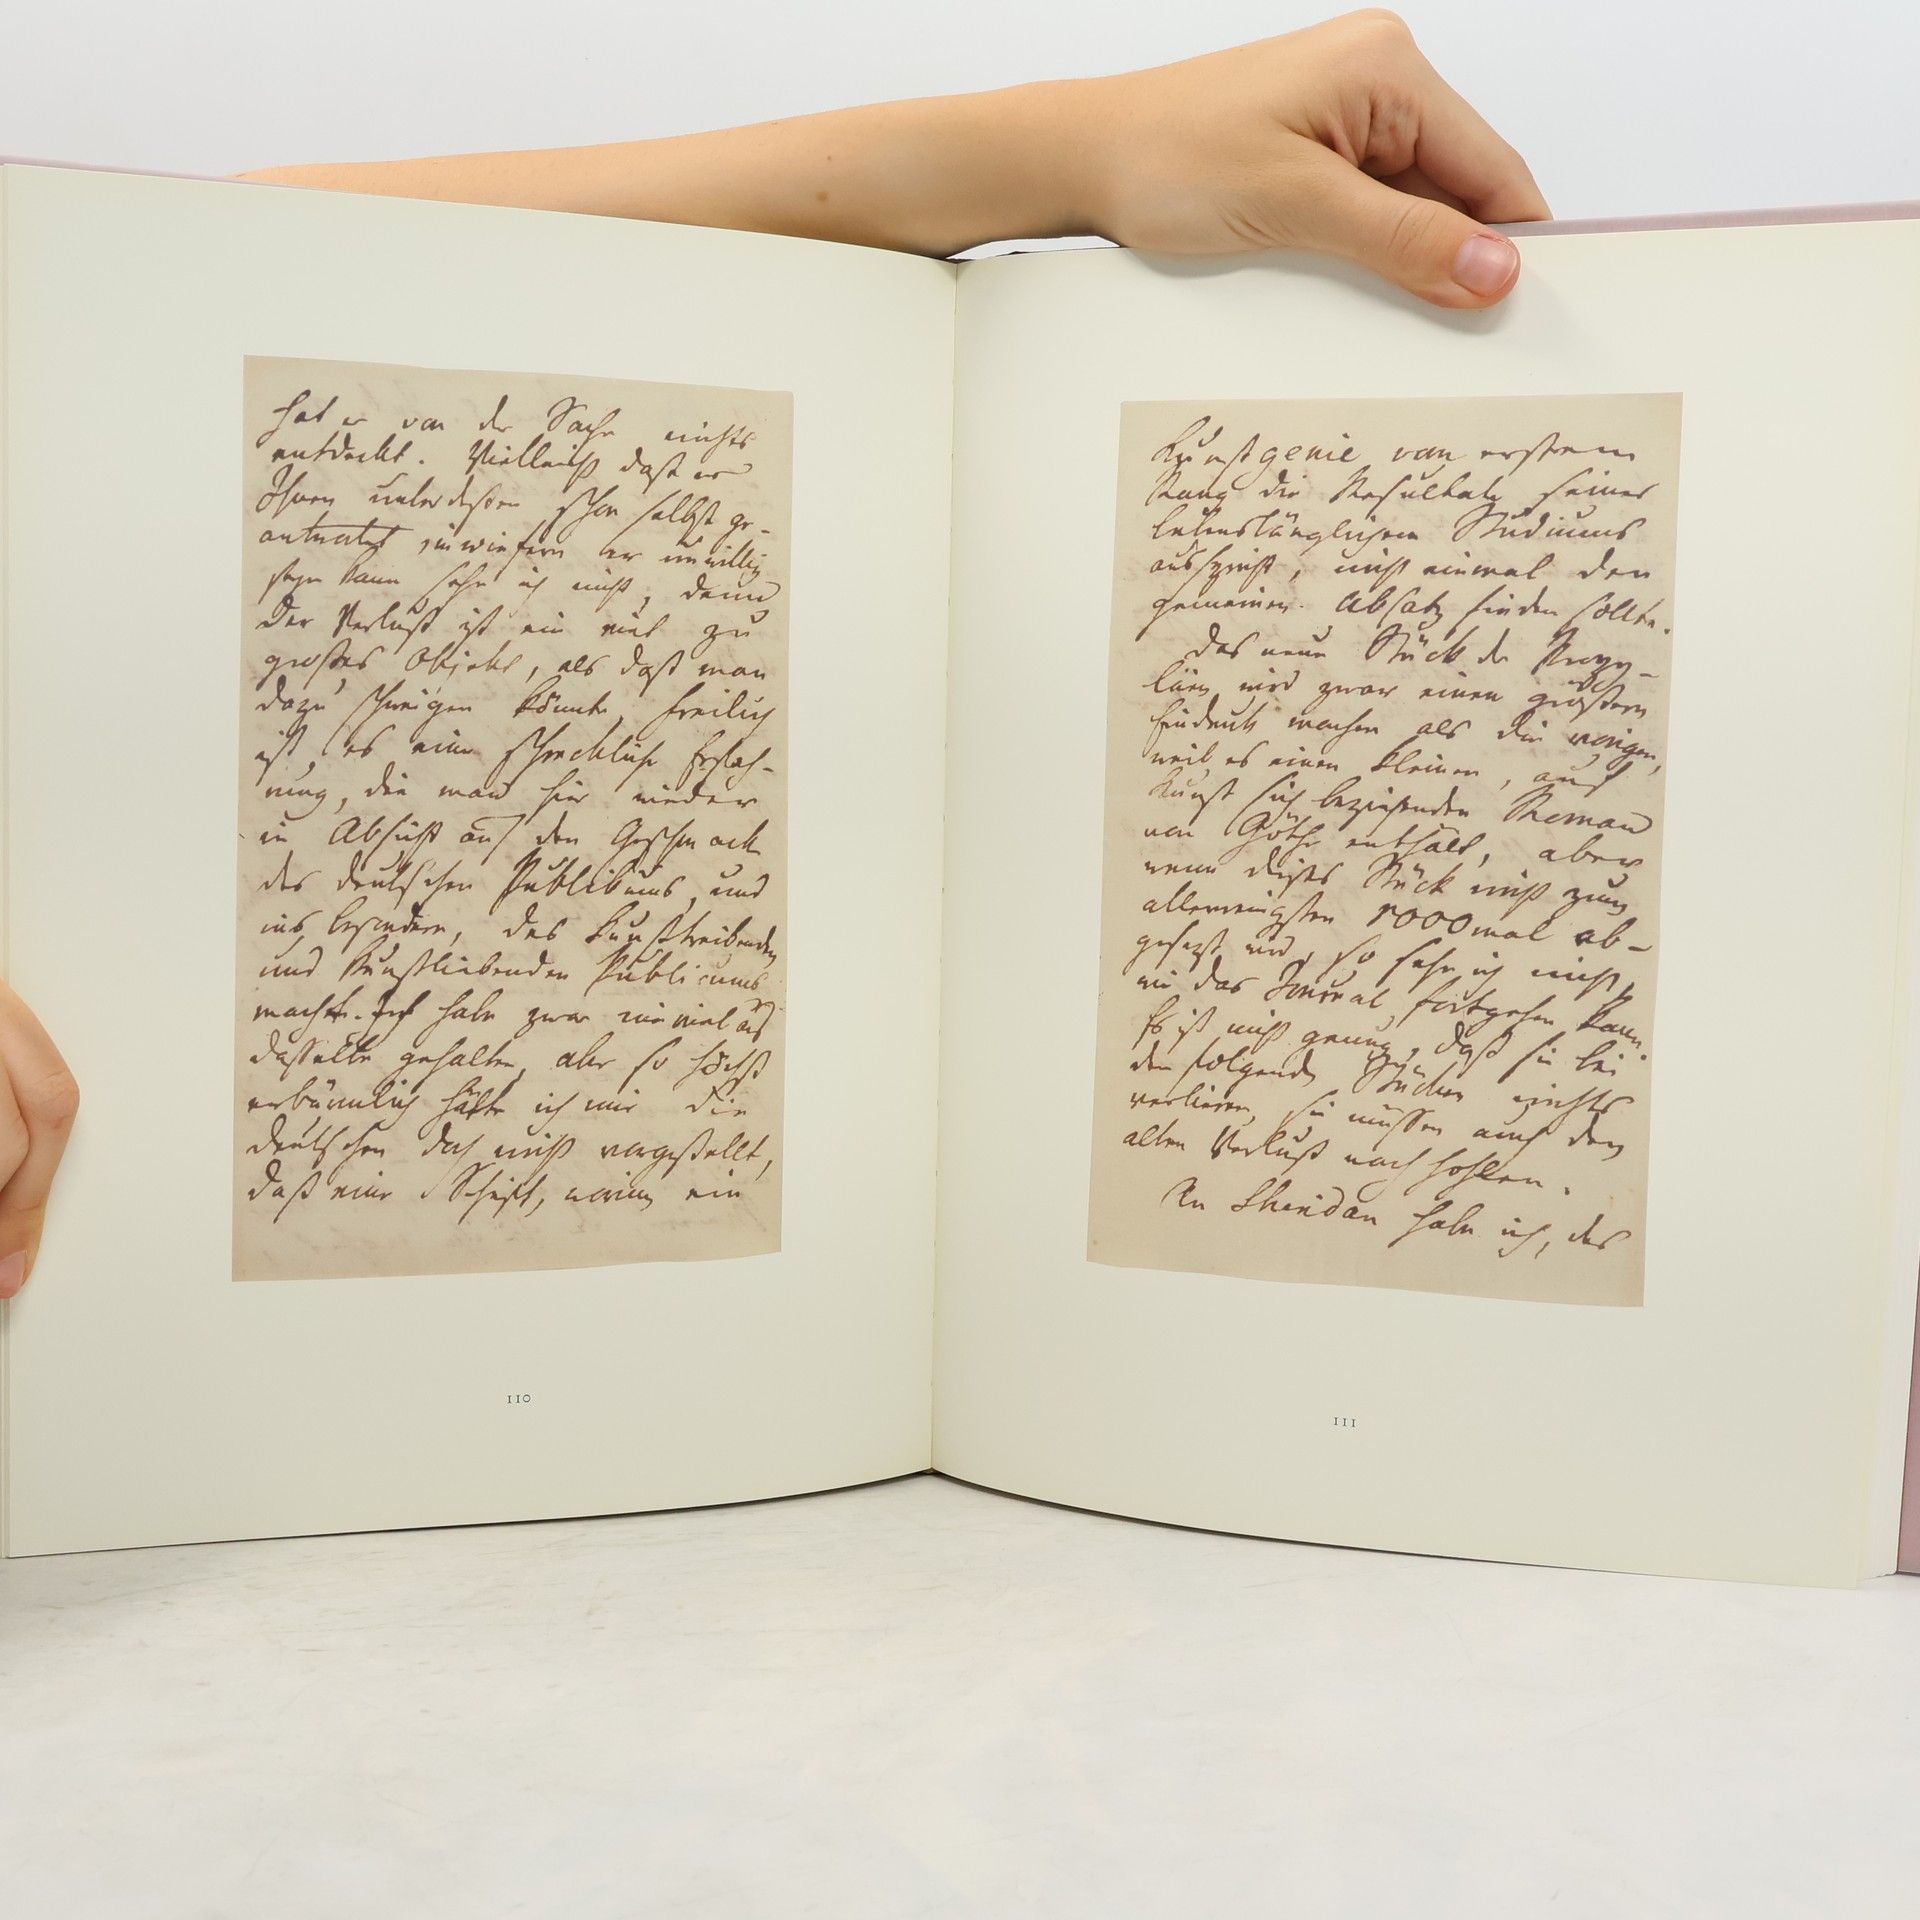 hat er von der Sache nichts
entdeckt. Vielleicht daß er
Ihnen unterdeßen schon selbst ge-
antwortet, in wiefern er unwillig
seyn kann sehe ich nicht, denn
der Verlust ist ein viel zu
großes Objekt, als daß man
dazu schweigen könnte, freilich
ist es eine schreckliche Erfah-
rung, die man hier wieder
in Absicht auf den Geschmack
des deutschen Publikums, und
ins besondere, des kunsttreibenden
und kunstliebenden Publicums
macht. Ich habe zwar nie viel auf
dasselbe gehalten, aber so höchst
erbärmlich hätte ich mir die
deutschen doch nicht vorgestellt,
daß eine Schrift, worinn ein
110
Kunstgenie vom ersten
Rang die Resultate seines
lebenslänglichen Studiums
ausspricht, nicht einmal den
gemeinen Absatz finden sollte.
Das neue Stück der Propy-
läen wird zwar einen größern
Eindruck machen als die vorigen,
weil es einen kleinen, auf
Kunst sich beziehenden Roman
von Göthe enthält, aber
wenn dieses Stück nicht zum
allerwenigsten 1000mal ab-
gesezt wird, so sehe ich nicht,
wie das Journal fortgehen kann.
Es ist nicht genung, daß sie bei
den folgenden Stücken nichts
verlieren, sie müssen auch den
alten Verlust nach hohlen.
An Sheridan habe ich, des
111